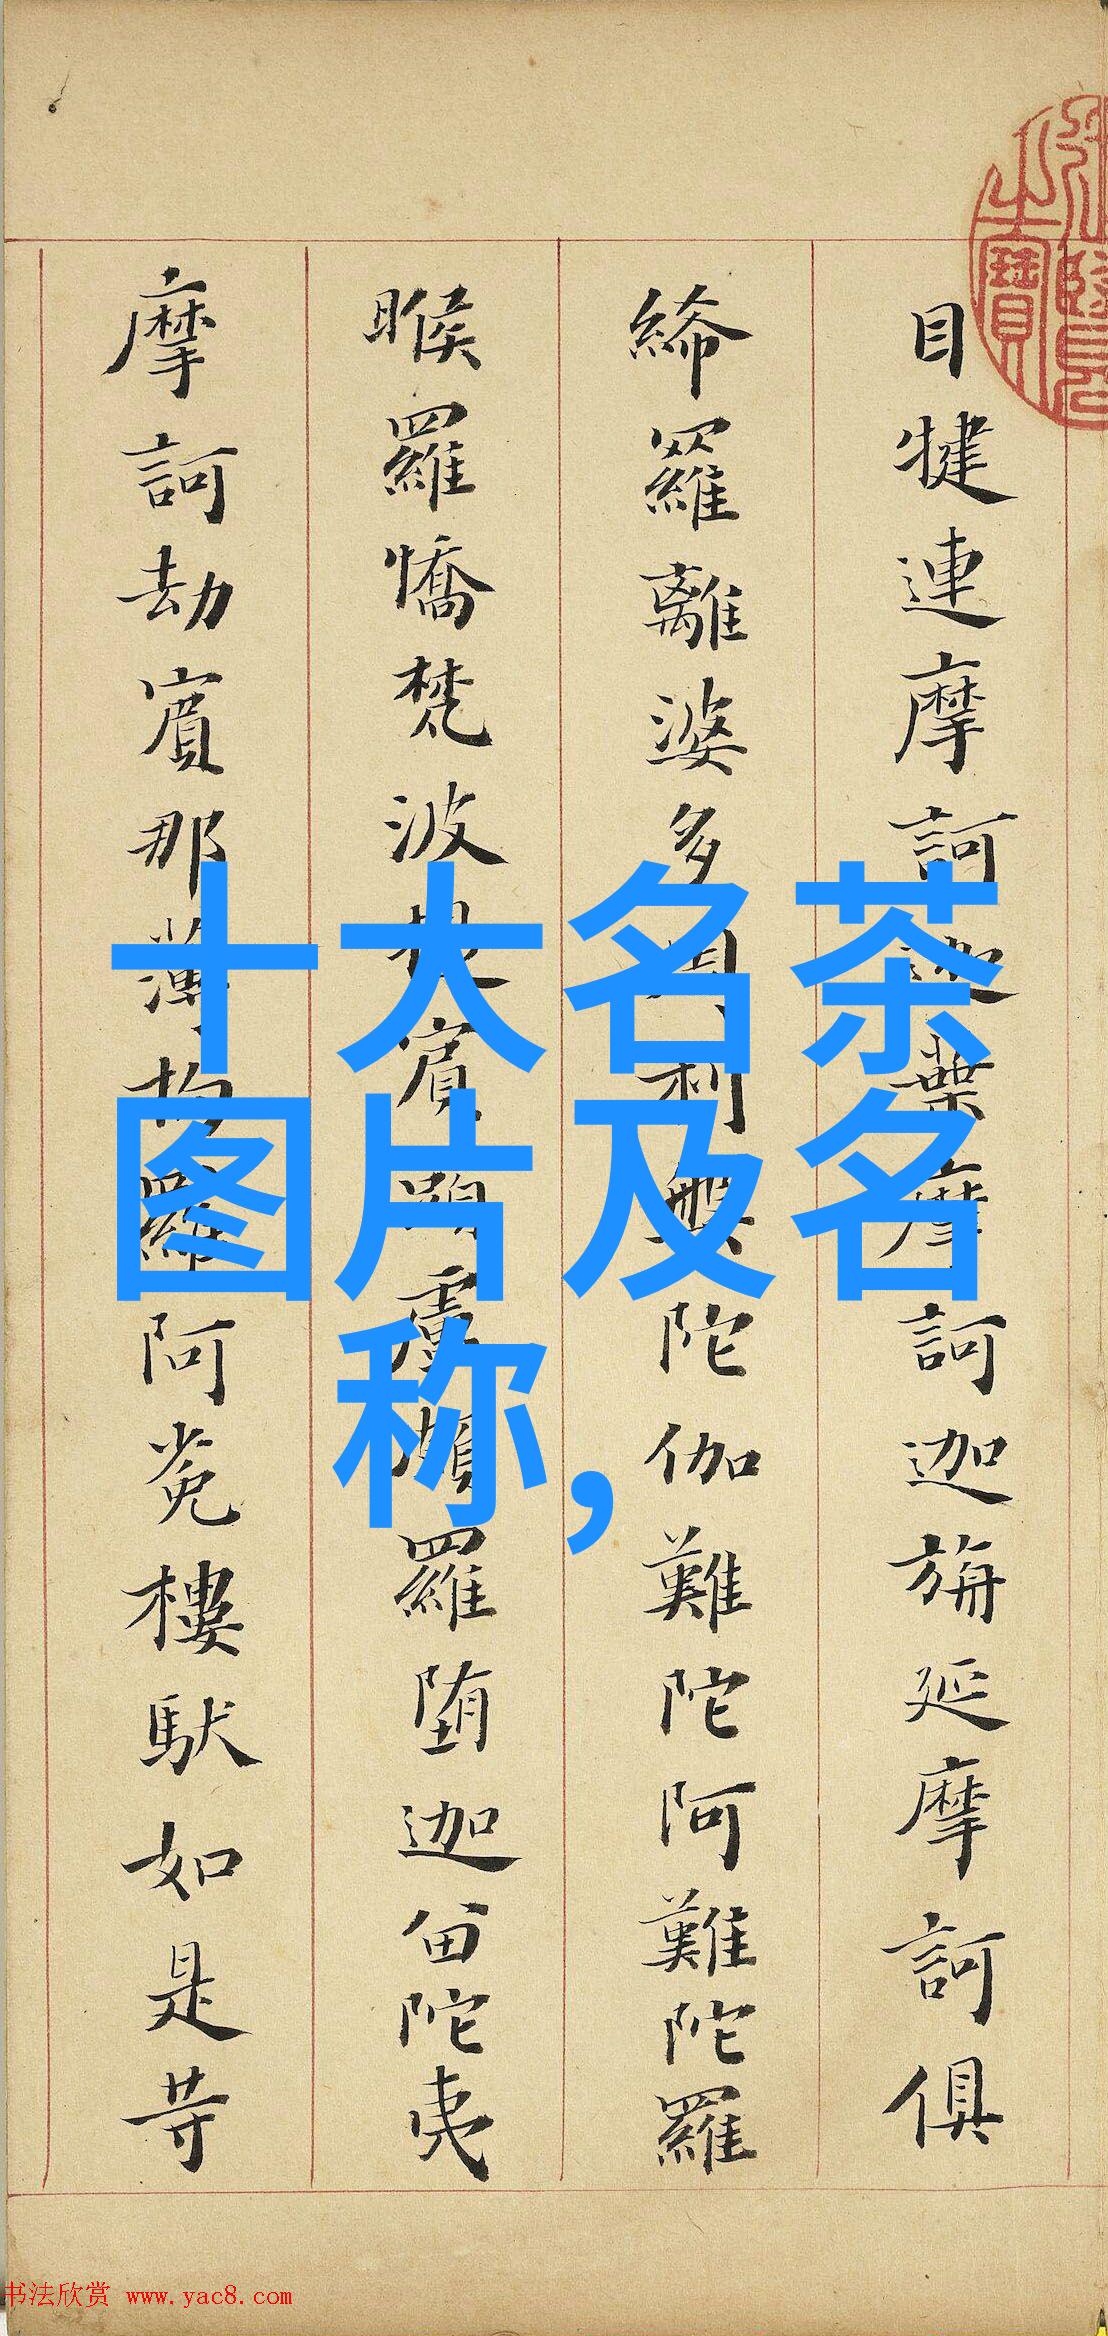 目犍連摩訶迦葉摩訶迦旃延摩訶俱
絺羅離婆多周利槃陀伽難陀阿難陀羅
睺羅憍梵波提賓頭盧頗羅堕迦留陀夷
摩訶劫賓那薄拘羅阿㝹樓馱如是等
之寶
十大名茶
图片及名
称,
书法欣赏 www.yac8.com